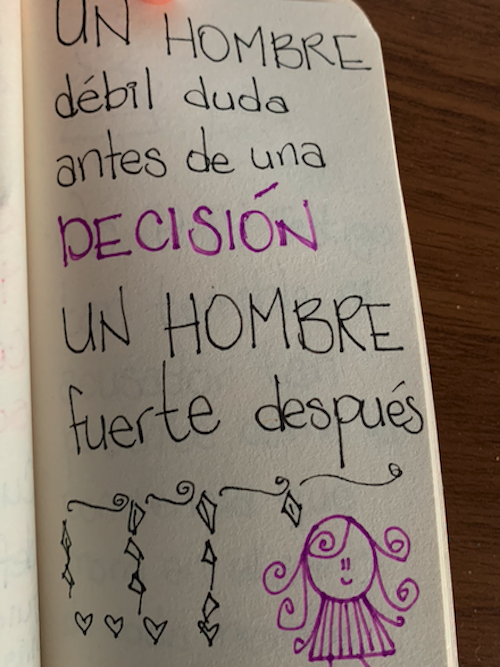 UN HOMBRE
débil duda
antes de una
DECISIÓN
UN HOMBRE
fuerte después